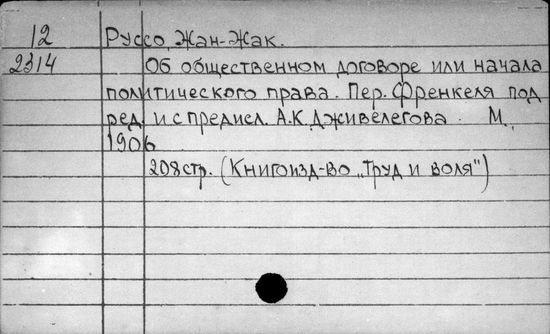 12 Руссо, Жан-Жак.
2314 Об общественном договоре или начала
политического права. Пер. Френкеля под
ред. и с предисл. А.К. Дживелегова. М.,
1906
208 стр. (Книгоизд-во „Труд и воля")